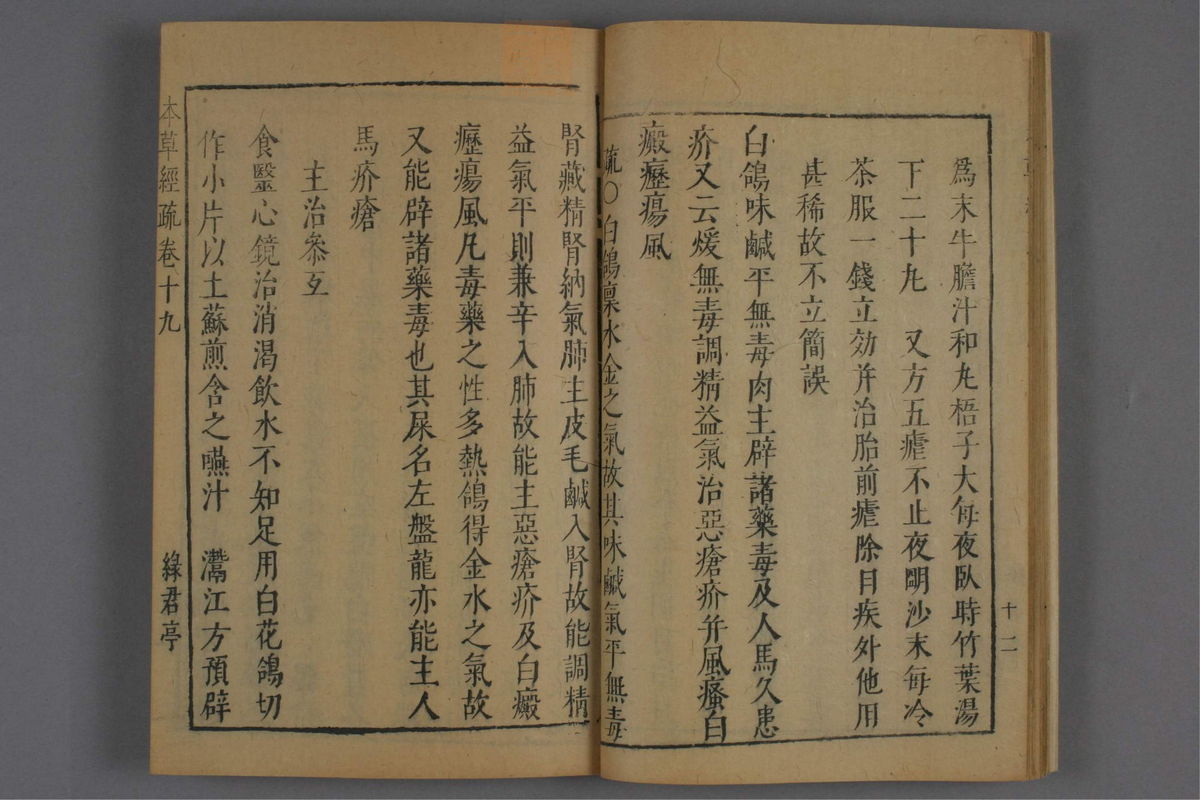 為末牛膽汁和丸梧子大每夜臥時竹葉湯
下二十丸　又方五瘧不止夜明沙末每冷
茶服一錢立効并治胎前瘧除目疾外他用
甚稀故不立簡誤
白鴿味鹹平無毒肉主辟諸藥毒及人馬久患
疥又云煖無毒調精益氣治惡瘡疥并風瘙白
癜癧瘍風
疏○白鴿稟水金之氣故其味鹹氣平無毒
十二
腎藏精腎納氣肺主皮毛鹹入腎故能調精
益氣平則兼辛入肺故能主惡瘡疥及白癜
癧瘍風凡毒藥之性多熱鴿得金水之氣故
又能辟諸藥毒也其屎名左盤龍亦能主人
馬疥瘡
主治叅互
食醫心鏡治消渴飲水不知足用白花鴿切
作小片以土蘇煎含之嚥汁　灊江方預辟
本草經疏卷十九
綠君亭